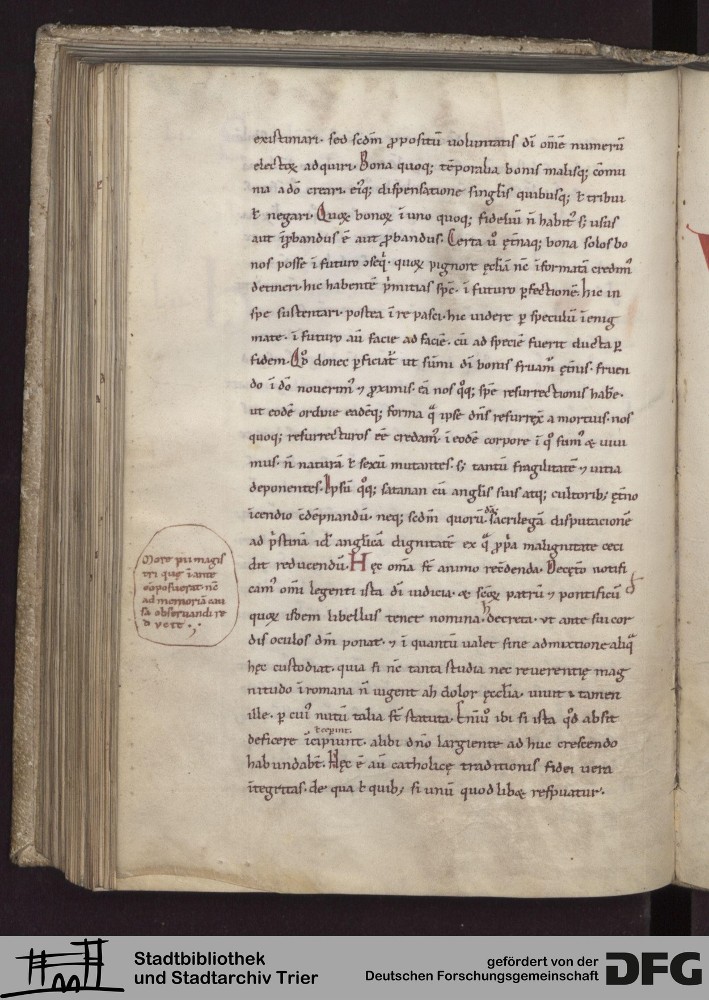 existimari. sed scdm ꝓpositū uoluntatis dī om̄e numerū
electoꝝ adquiri. Bona quoq; tēporalia bonis malisq; cōmu
nia a dō creari. eiꝰq; dispensatione singlis quibusq; ł tribui
ł negari. Quoꝝ bonoꝝ ī uno quoq; fideliū ñ habitꝰ s; usus
aut īꝓbandus ē aut ꝓbandus. Certa ů ęt̄naq; bona solos bo
nos posse ī futuro ɔseq̇. quoꝝ pignore ęcl̄iā nc̄ īformatā credimꝰ
detineri. hic habentē p̄mitias spc̄. ī futuro ꝑfectionē. hic in
spe sustentari. postea ī re pasci. hic uidere ꝑ speculū ī enig
mate. ī futuro aū facie ad faciē. cū ad speciē fuerit ducta ꝑ
fidem. Qd̊ donec ꝑficiat᷑ ut sūmi dī bonis fruam᷑ ęt̄nis. fruen
do ī dō nouerimꝰ ⁊ ꝓximis. eā nos q̊q; spē resurrectionis habe.
ut eodē ordine eadēq; forma q̄ ipse dn̄s resurrex̄ a mortuis. nos
quoq; resurrecturos eē credamꝰ. ī eodē corpore ī q̊ sumꝰ & uiui
mus. ñ naturā ł sexū mutantes. s; tantū fragilitatē ⁊ uitia
deponentes. Ipsū q̊q; satanan cū anglis suis atq; cultorib; ęt̄no
īcendio cōdēpnandū. neq; scdm quorū dā sacrilegā disputacionē
ad p̄stinā id ē anglicā dignitatē ex q̄ ꝓp̄a malignitate ceci
dit reducendū. Hęc om̄a st̄ animo ret̄denda. Decęt̄o notifi
camꝰ om̄i legenti ista dī iudicia. & sc̄oꝝ patrū ⁊ pontificū
quoꝝ isdem libellus tenet nomina. h decreta. vt ante sui cor
dis oculos dm̄ ponat. ⁊ ī quantū ualet sine admixtione aliq̄
hęc custodiat. quia si nc̄ tanta studia nec reuerentię mag
nitudo ī romana ñ uigent ah dolor ęccl̄ia. uiuit tamen
ille. ꝑ cuiꝰ nutū talia st̄ statuta. ibi si ista qd̊ absit
ł ceperint.
deficere īcipiunt. alibi dn̄o largiente ad huc crescendo
habundabt̄. Hęc ē aū catholicę traditionis fidei uera
ītegritas. de qua ł quib; si unū quod libet respuatur.
More pii magis
tri quę ī ante
ꝓposuerat nc̄
ad memoriā cau
sa obseruandi re
duc̄t.
Stadtbibliothek
und Stadtarchiv Trier
gefördert von der
Deutschen Forschungsgemeinschaft
DFG